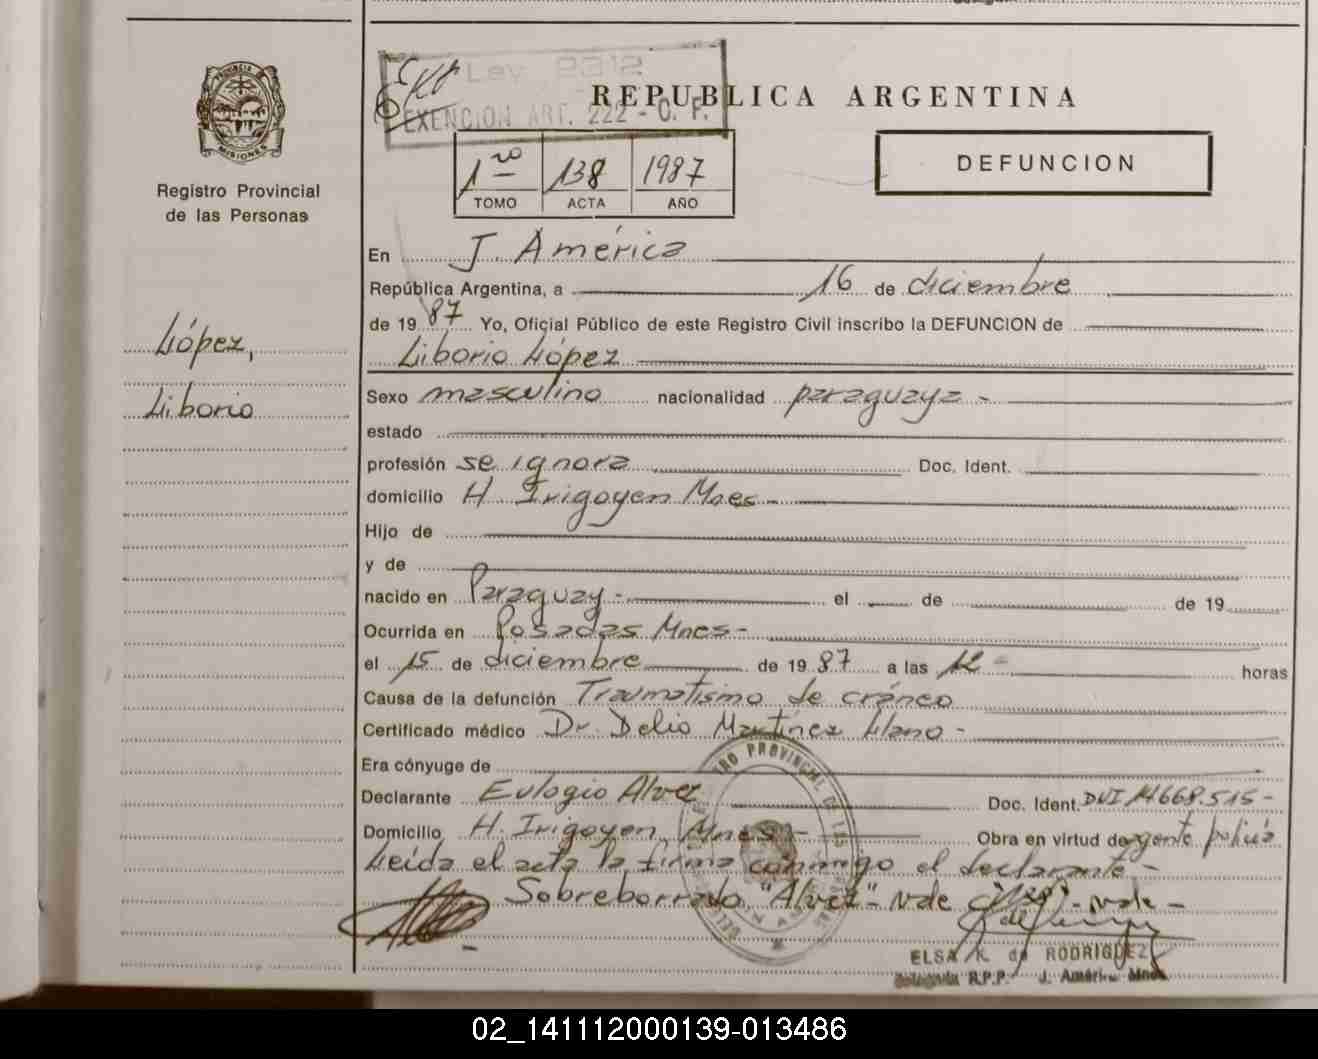 Ley 2312
EXENCION ART. 222 - C. F.
REPUBLICA ARGENTINA
PROVINCIA DE
MISIONES
Registro Provincial
de las Personas
1ro 138 1987
TOMO ACTA AÑO
DEFUNCION
En J. América
República Argentina, a 16 de diciembre
de 1987 Yo, Oficial Público de este Registro Civil inscribo la DEFUNCION de
López,
Liborio
Liborio López
Sexo masculino nacionalidad paraguaya -
estado
profesión se ignora Doc. Ident.
domicilio H Irigoyen Mnes -
Hijo de
y de
nacido en Paraguay - el de de 19
Ocurrida en Posadas Mnes -
el 15 de diciembre de 1987 a las 12 - horas
Causa de la defunción Traumatismo de cráneo
Certificado médico Dr. Delio Martínez Llano -
Era cónyuge de
Declarante Eulogio Alvez Doc. Ident. DUI 14668.515 -
Domicilio H. Irigoyen Mnes - Obra en virtud de agente policía
Leída el acta la firma conmigo el declarante -
Sobreborrado "Alvez" - vale - vale -
ELSA K. de RODRIGUEZ
Delegada R.P.P. J. América Mnes
02_141112000139-013486